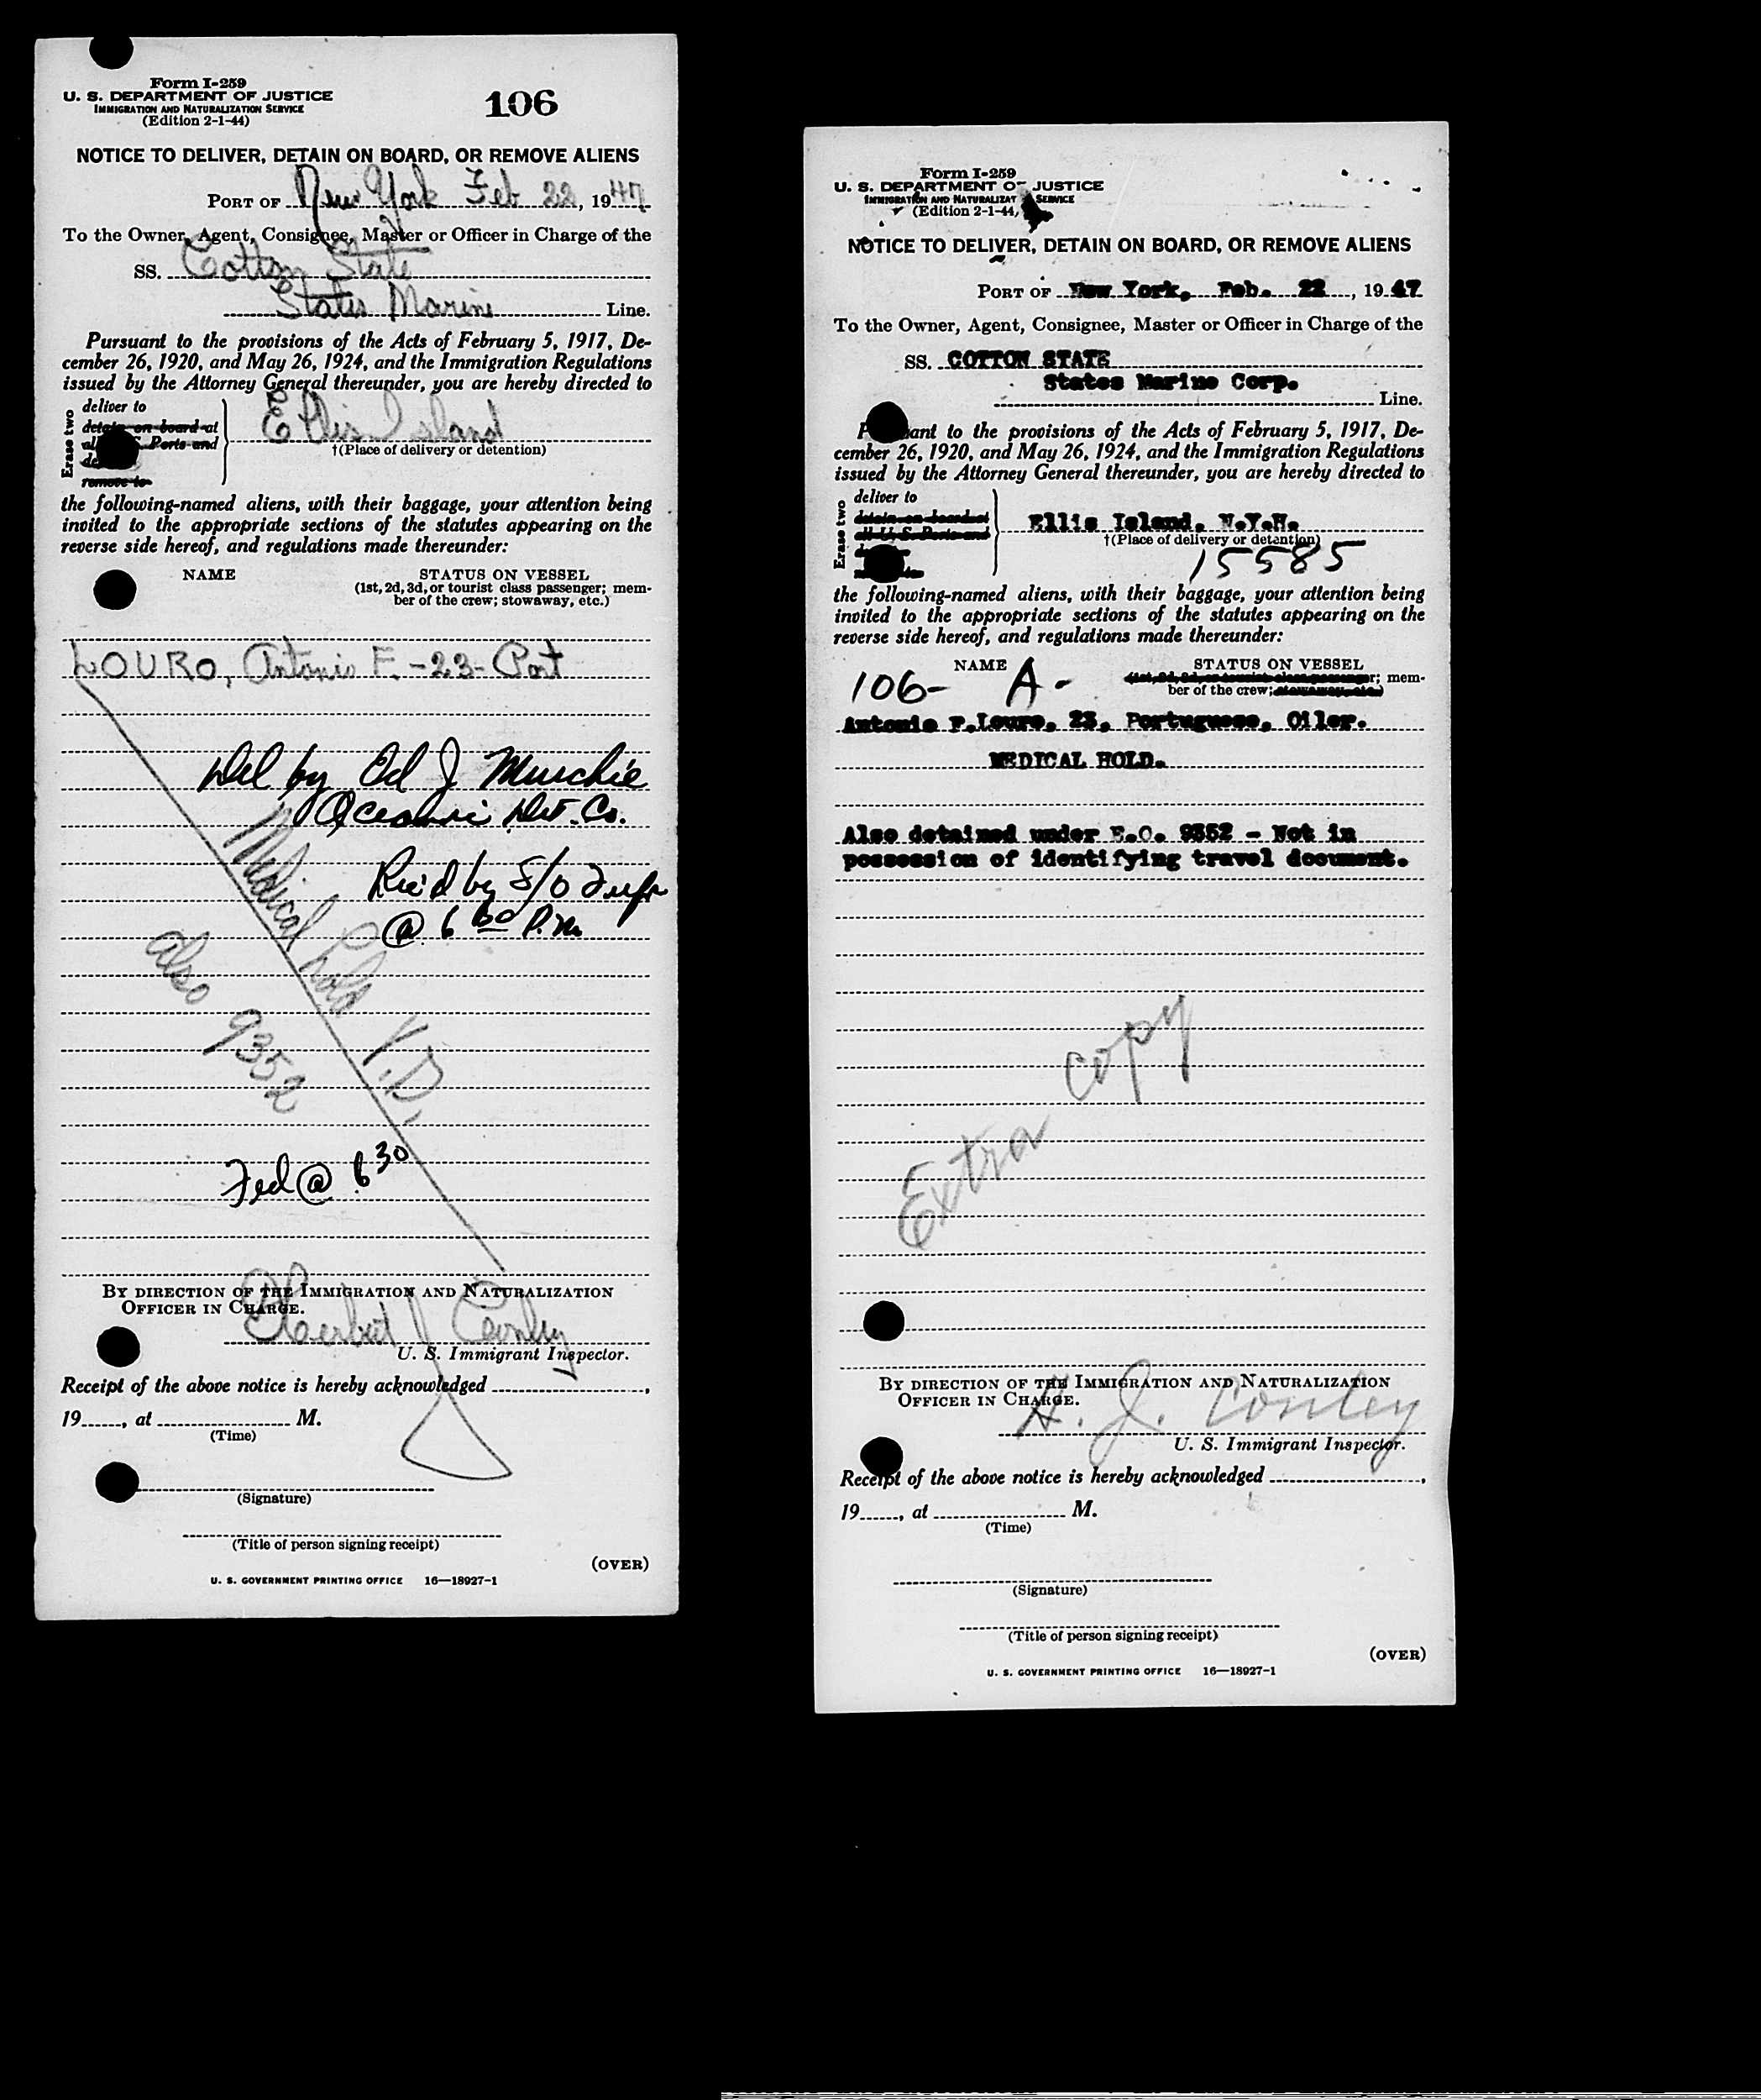 Form I-259
U. S. DEPARTMENT OF JUSTICE
IMMIGRATION AND NATURALIZATION SERVICE
(Edition 2-1-44)
106
NOTICE TO DELIVER, DETAIN ON BOARD, OR REMOVE ALIENS
PORT OF New York Feb 22, 1947
To the Owner, Agent, Consignee, Master or Officer in Charge of the
SS. Cotton State
States Marine Line.
Pursuant to the provisions of the Acts of February 5, 1917, De-
cember 26, 1920, and May 26, 1924, and the Immigration Regulations
issued by the Attorney General thereunder, you are hereby directed to
Erase two
deliver to
detain on board at
all S. Ports and
de
remove to
Ellis Island
†(Place of delivery or detention)
the following-named aliens, with their baggage, your attention being
invited to the appropriate sections of the statutes appearing on the
reverse side hereof, and regulations made thereunder:
NAME STATUS ON VESSEL
(1st, 2d, 3d, or tourist class passenger; mem-
ber of the crew; stowaway, etc.)
LOURO, Antonio F. -23- Port
Del by Ed J Murchie
Oceanic Det. Co.
Rec'd by S/O
@ 6 P.M.
Medical hold V.D.
also 9352
Fed @ 6 30
BY DIRECTION OF THE IMMIGRATION AND NATURALIZATION
OFFICER IN CHARGE.
Herbert J Conley
U. S. Immigrant Inspector.
Receipt of the above notice is hereby acknowledged
19, at M.
(Time)
(Signature)
(Title of person signing receipt)
(OVER)
U. S. GOVERNMENT PRINTING OFFICE 16—18927-1
Form I-259
U. S. DEPARTMENT OF JUSTICE
IMMIGRATION AND NATURALIZAT SERVICE
(Edition 2-1-44)
NOTICE TO DELIVER, DETAIN ON BOARD, OR REMOVE ALIENS
PORT OF New York, Feb. 22, 1947
To the Owner, Agent, Consignee, Master or Officer in Charge of the
SS. COTTON STATE
States Marine Corp.
Line.
P ant to the provisions of the Acts of February 5, 1917, De-
cember 26, 1920, and May 26, 1924, and the Immigration Regulations
issued by the Attorney General thereunder, you are hereby directed to
Erase two
deliver to
detain on board at
all U. S. Ports and
Ellis Island, N.Y.H.
†(Place of delivery or detention)
15585
the following-named aliens, with their baggage, your attention being
invited to the appropriate sections of the statutes appearing on the
reverse side hereof, and regulations made thereunder:
NAME STATUS ON VESSEL
(1st, 2d, 3d, or tourist class passenger; mem-
ber of the crew; stowaway, etc.)
106- A-
Antonio F.Louro, 23, Portuguese, Oiler.
MEDICAL HOLD.
Also detained under E.O. 9352 - Not in
possession of identifying travel document.
Extra copy
BY DIRECTION OF THE IMMIGRATION AND NATURALIZATION
OFFICER IN CHARGE.
H. J. Conley
U. S. Immigrant Inspector.
Receipt of the above notice is hereby acknowledged
19, at M.
(Time)
(Signature)
(Title of person signing receipt)
(OVER)
U. S. GOVERNMENT PRINTING OFFICE 16—18927-1